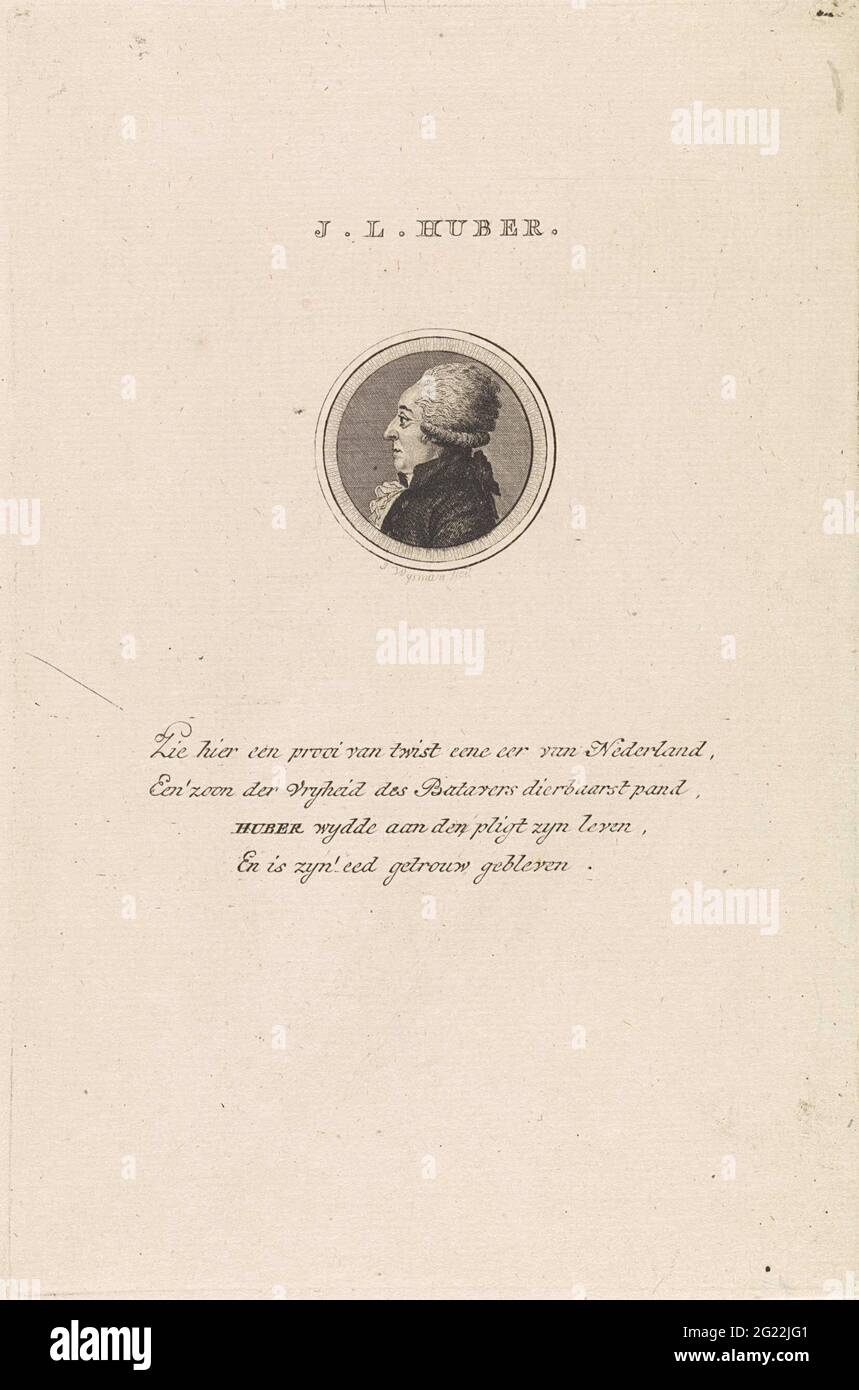 J. L. HUBER.
J. Wysman fect.
Zie hier een prooi van twist eene eer van Nederland,
Een' zoon der Vryheid des Batavers dierbaarst pand,
HUBER wydde aan den pligt zyn leven,
En is zyn' eed getrouw gebleven.
a
alamy
a
a
alamy
a
a
alamy
a
alamy
a
a
alamy
a
a
alamy
a
a
alamy
alamy
Image ID: 2G22JG1
www.alamy.com